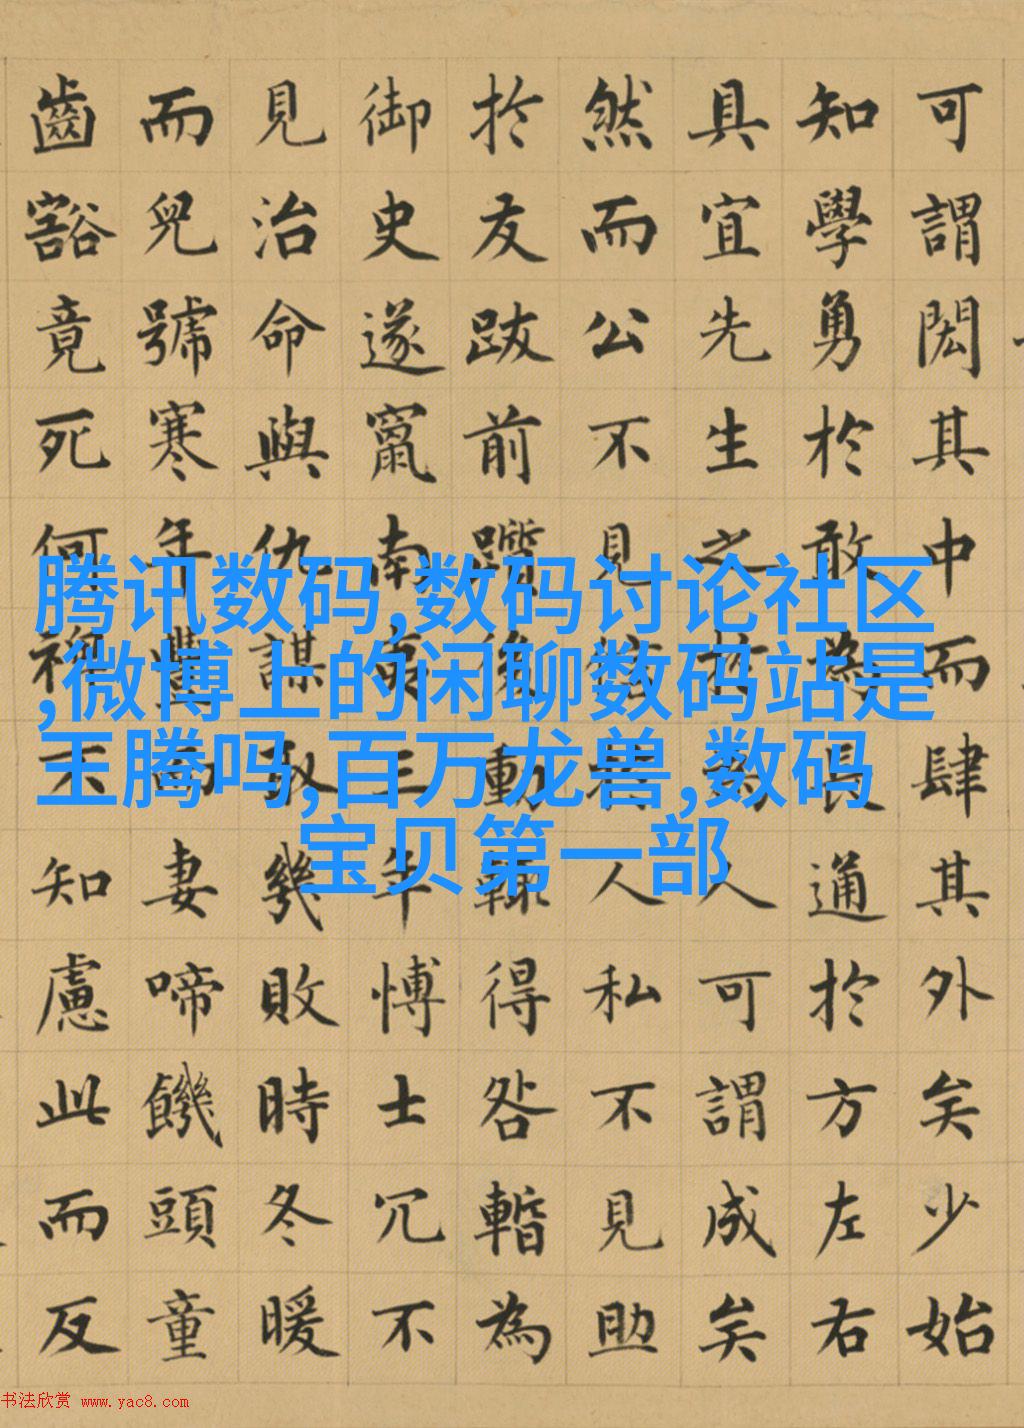 腾讯数码,数码讨论社区
,微博上的闲聊数码站是
王腾吗,百万龙兽,数码
宝贝第一部
可謂閎其中而肆其外矣少始
知學勇於敢為長通於方左右
具宜先生之於為人可謂成矣
然而公不見信於人私不見助
於友跋前躓後動輒得咎暫為
御史遂竄南夷三年愽士冗不
見治命與仇謀取幾敗時冬暖
而兒號寒年豐而妻啼饑頭童
齒豁竟死何裨不知慮此而反
书法欣赏 www.yac8.com